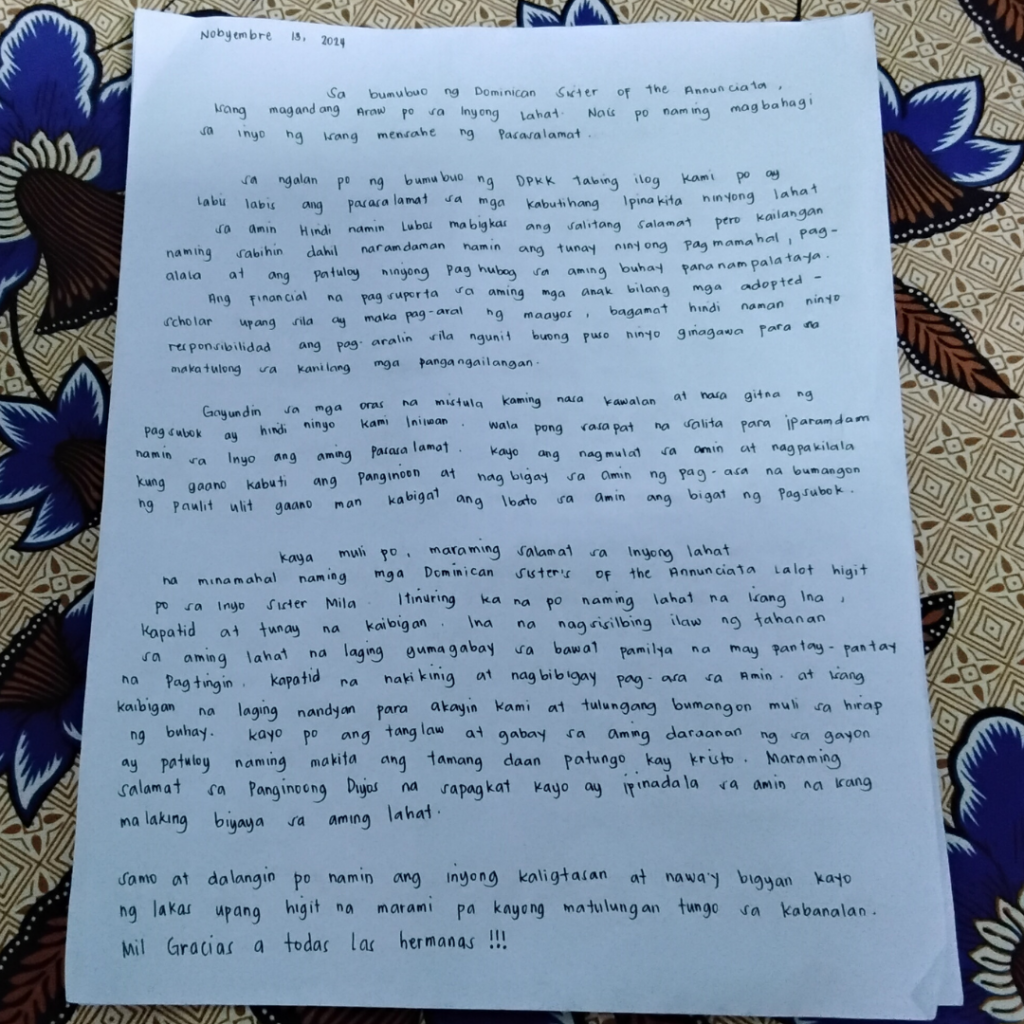 Nobyembre 13, 2024
Sa bumubuo ng Dominican Sister of the Annunciata,
Isang magandang Araw po sa Inyong Lahat. Nais po naming magbahagi
sa inyo ng Isang mensahe ng Pasasalamat.
Sa ngalan po ng bumubuo ng DPKK Tabing ilog kami po ay
Labis labis ang pasasalamat sa mga kabutihang Ipinakita ninyong lahat
sa amin Hindi namin Lubos mabigkas ang salitang salamat pero kailangan
naming sabihin dahil naramdaman namin ang tunay ninyong pagmamahal, pag-
alala at ang patuloy ninyong paghubog sa aming buhay pananampalataya.
Ang Financial na pagsuporta sa aming mga anak bilang mga adopted -
scholar upang sila ay maka pag-aral ng maayos, bagamat hindi naman ninyo
responsibilidad ang pag-aralin sila ngunit buong puso ninyo ginagawa para sa
makatulong sa kanilang mga pangangailangan.
Gayundin sa mga oras na mistula kaming nasa kawalan at nasa gitna ng
pagsubok ay hindi ninyo kami Iniwan. Wala pong sasapat na salita para iparamdam
namin sa Inyo ang aming pasasalamat. Kayo ang nagmulat sa amin at nagpakilala
kung gaano kabuti ang Panginoon at nagbigay sa amin ng pag-asa na bumangon
ng paulit ulit gaano man kabigat ang Ibato sa amin ang bigat ng Pagsubok.
Kaya muli po, maraming salamat sa Inyong lahat
na minamahal naming mga Dominican Sister's of the Annunciata Lalot higit
po sa Inyo Sister Mila. Itinuring ka na po naming lahat na Isang Ina,
kapatid at tunay na kaibigan. Ina na nagsisilbing ilaw ng tahanan
sa aming lahat na laging gumagabay sa bawat pamilya na may pantay-pantay
na Pagtingin. Kapatid na nakikinig at nagbibigay pag-asa sa Amin. at Isang
kaibigan na laging nandyan para akayin kami at tulungang bumangon muli sa hirap
ng buhay. Kayo po ang tanglaw at gabay sa aming daraanan ng sa gayon
ay patuloy naming makita ang tamang daan patungo kay kristo. Maraming
salamat sa Panginoong Diyos na sapagkat kayo ay ipinadala sa amin na Isang
malaking biyaya sa aming lahat.
Samo at dalangin po namin ang inyong kaligtasan at naway bigyan kayo
ng lakas upang higit na marami pa kayong matulungan tungo sa kabanalan.
Mil Gracias a todas las hermanas !!!